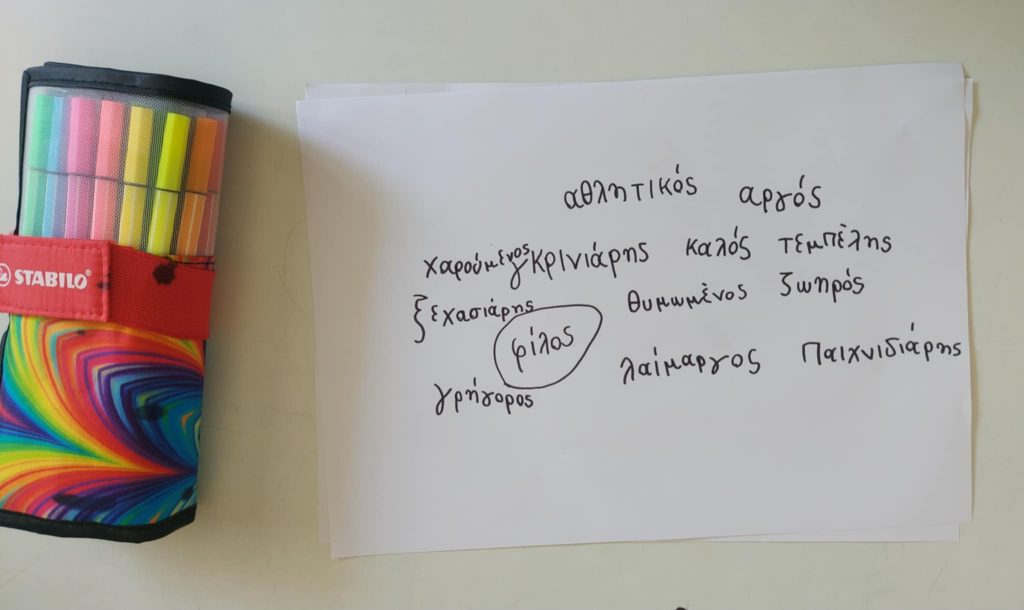 STABILO®
αθλητικός αργός
χαρούμενος γκρινιάρης καλός τεμπέλης
ξεχασιάρης θυμωμένος ζωηρός
φίλος
γρήγορος λαίμαργος παιχνιδιάρης